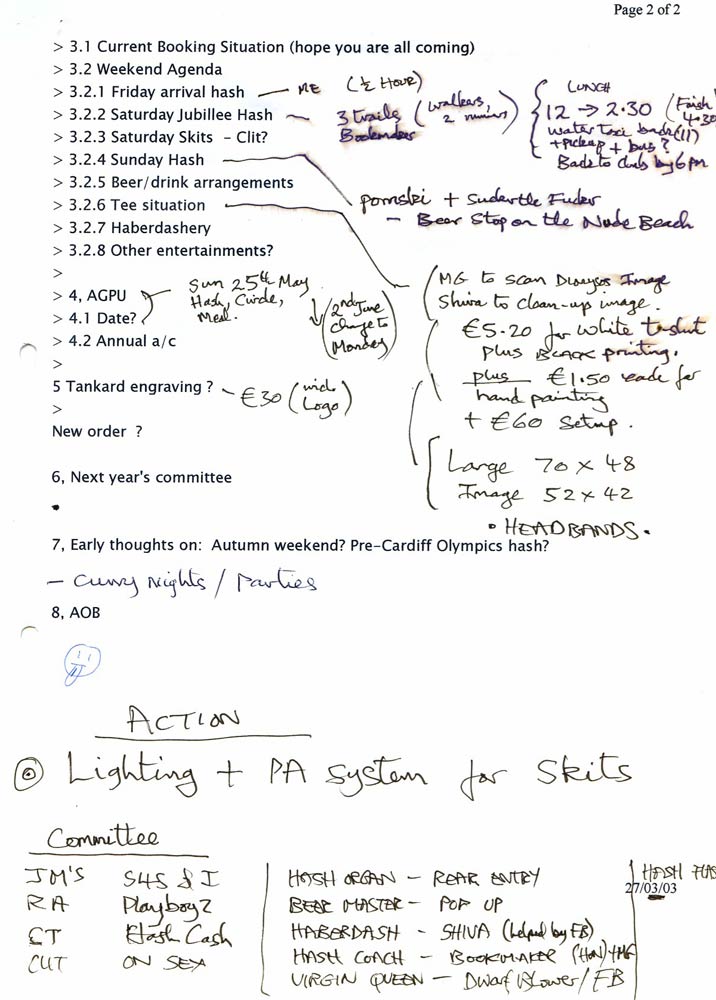 Page 2 of 2
> 3.1 Current Booking Situation (hope you are all coming)
> 3.2 Weekend Agenda
> 3.2.1 Friday arrival hash — ME (½ HOUR)
> 3.2.2 Saturday Jubilee Hash ~ 3 trails (walkers, 2 runners)
Bookmaker
LUNCH
12 → 2.30 (Finish 4.30
water taxi back (11)
+ pickup + bus?
Back to club by 6pm
> 3.2.3 Saturday Skits – Clit?
> 3.2.4 Sunday Hash
pomski +
– Beer Stop on the Nude Beach
> 3.2.5 Beer/drink arrangements
> 3.2.6 Tee situation
MG to scan Dionysos Image
Shiva to clean-up image.
€5.20 for white t-shirt
plus BLACK printing.
plus €1.50 each for
hand painting
+ €60 Setup.
Large 70 x 48
Image 52 x 42
• HEADBANDS.
> 3.2.7 Haberdashery
> 3.2.8 Other entertainments?
>
> 4, AGPU
Sun 25th May
Hash, Circle,
Meal.
(2nd June
change to
Monday)
> 4.1 Date?
> 4.2 Annual a/c
>
5 Tankard engraving ? ~ €30 (with Logo)
>
New order ?
6, Next year's committee
7, Early thoughts on: Autumn weekend? Pre-Cardiff Olympics hash?
– Curry Nights / Parties
8, AOB
ACTION
Lighting + PA system for Skits
Committee
JM'S S4S & I
RA Playboy2
CT Hash Cash
CUT ON SEX
HASH ORGAN – REAR ENTRY
BEER MASTER – POP UP
HABERDASH – SHIVA (helped by FB)
HASH COACH – BOOKMAKER (HON) + MG
VIRGIN QUEEN – Dwarf Blower / FB
HASH
27/03/03